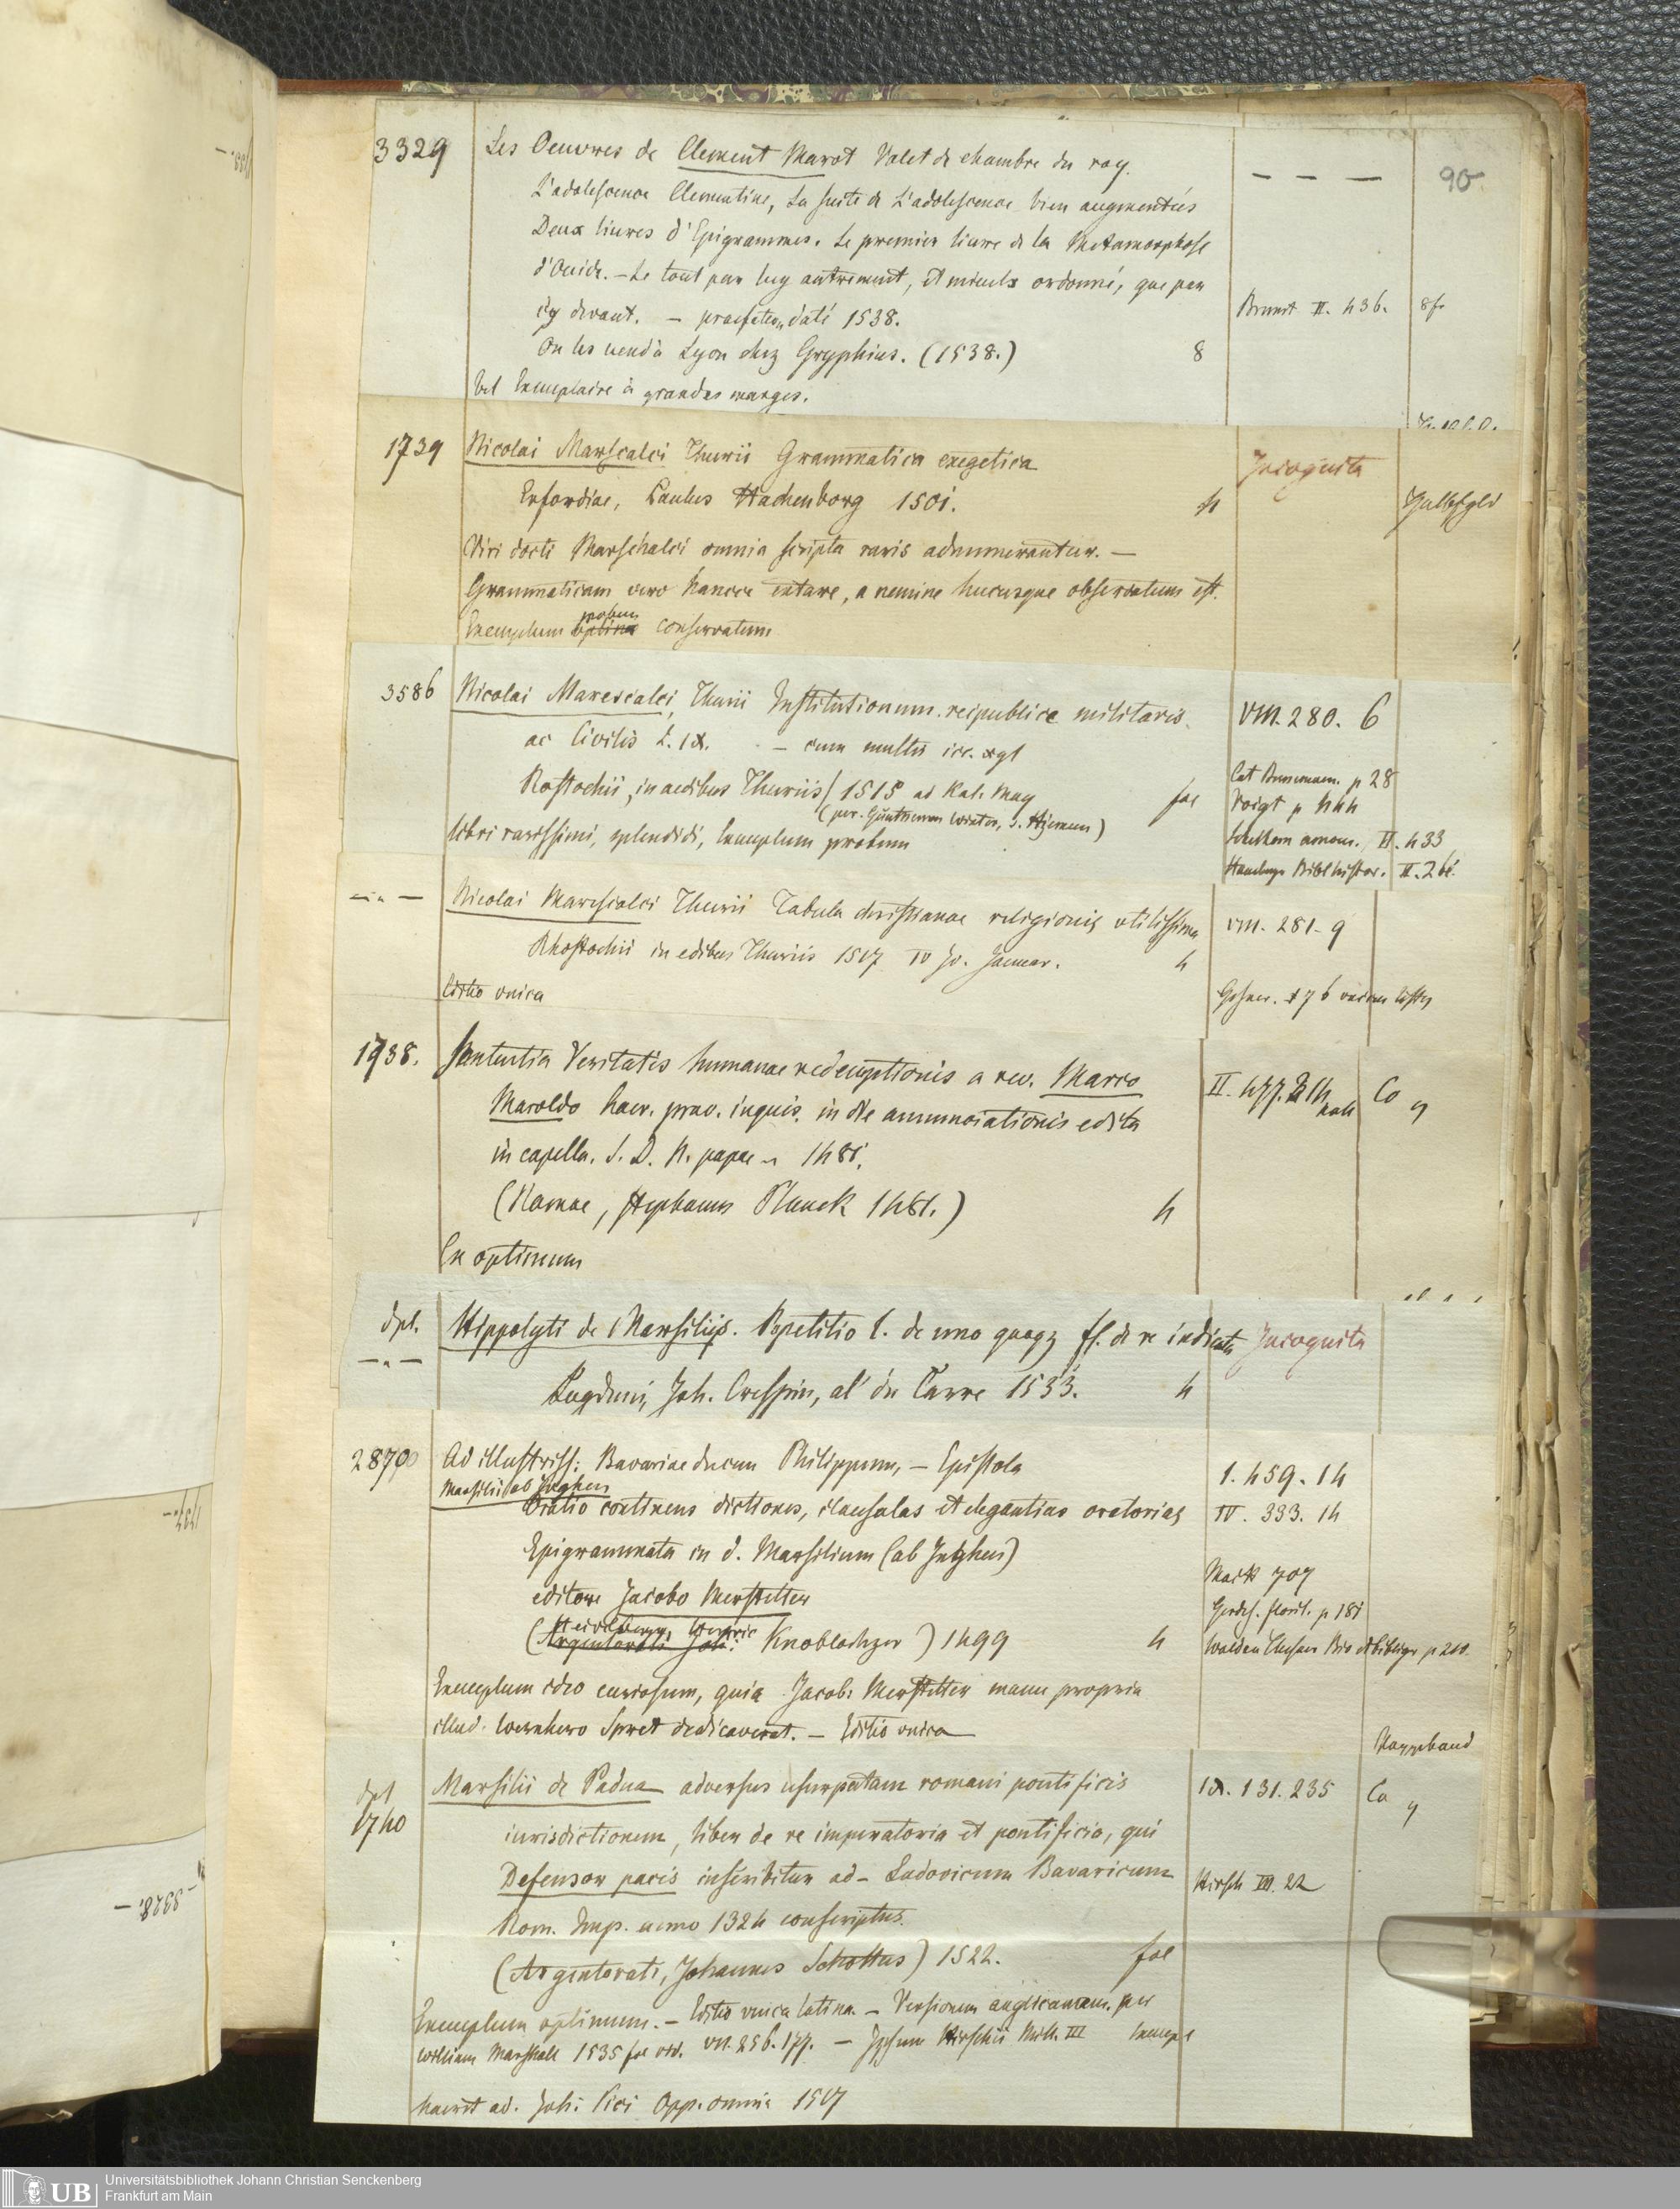 90
3329 Les Oeuvres de Clement Marot Valet de chambre du roy.
L'adolescence Clementine, La suite de L'adolescence bien augmentées
Deux liures d'Epigrammes. Le premier liure de la Metamorphose
d'Ouide. – Le tout par luy autrement, et mieulx ordonné, que par
cy devant. – daté 1538.
Brunet II. 436. 8fr
On les uend à Lyon chez Gryphius. (1538.) 8
bel Exemplaire à grandes marges.
1739 Nicolai Marscalci Thurii Grammatica exegetica Incognita
Erfordiae, Paulus Hachenborg 1501. 4
Viri docti Marschalci omnia scripta raris adnumerantur. –
Grammaticam vero hancce extare, a nemine hucusque observatum est.
Exemplum probum conservatum
3586 Nicolai Marescalci, Thurii Institutionum reipublice militaris
ac Civilis L. IX. – cum multis
VIII. 280. 6
Rostochii, in aedibus Thuriis 1515 ad Kal. May fol
libri rarissimi, splendidi, Exemplum probum
p 28
Voigt p 444
II. 433
Bibl histor. II. 26
Nicolai Marescalci Thurii Tabula christianae religionis utilissima VIII. 281. 9
Rhostochii in edibus Thuriis 1507 IV Januar. 4
Editio unica
1938. Sententia Veritatis humanae redemptionis a rev. Marco
Maroldo haer. prav. inquis. in die annunciationis edita
in capella. S. D. N. papae 1481.
(Romae, Stephanus Planck 1481.) 4
Ex optimum
dpl. Hippolyti de Marsiliis. Repetitio l. de uno quoqz ff. de re indicata Incognita
Lugduni, Joh. Crespin, al' du Carre 1533. 4
2870 Ad illustriss: Bavariae ducem Philippum, – Epistola
Marsilii ab Inghen
Oratio continens dictiones, clausulas et elegantias oratorias
Epigrammata in d. Marsilium (ab Inghen)
editore Jacobo Merstetter
(Heidelberg, Knoblochzer) 1499 4
1. 459. 14
IV. 333. 14
707
p 181
Exemplum ideo curiosum, quia Jacob: Merstetter manu propria
illud Wernhero Spret dedicaverat. – Editio unica
dpl
1740 Marsilii de Padua adversus usurpatam romani pontificis
IX. 131. 235 Co
iurisdictionem, liber de re imperatoria et pontificia, qui
Defensor pacis inscribitur ad – Ludovicum Bavaricum
Hirsch III. 22
Rom. Imp. anno 1324 conscriptus.
(Argentorati, Johannes Schottus) 1522. fol
Exemplum optimum. – Editio unica latina – Versionem anglicanam per
William Marshall 1535 fol vid. VII. 256. 177. – Ipsum Hirschii Mill. III
haeret ad. Joh: Pici Opp. omnia 1507
UB Universitätsbibliothek Johann Christian Senckenberg
Frankfurt am Main